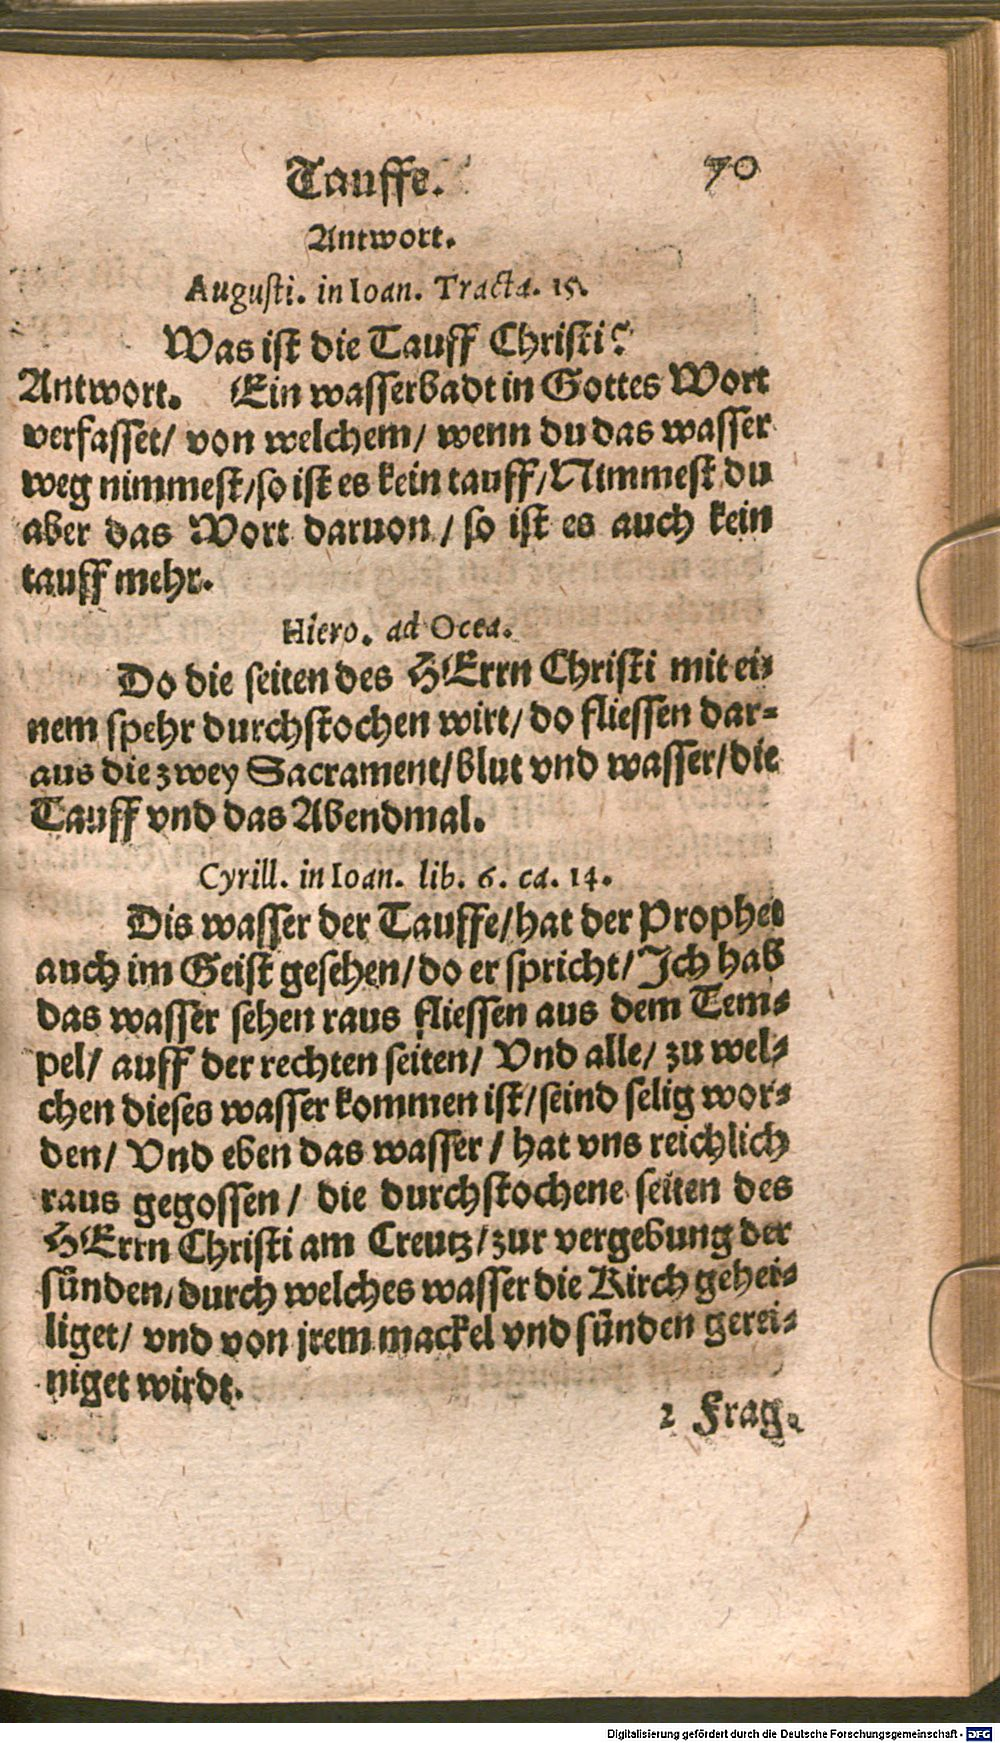 Tauffe. 70
Antwort.
Augusti. in Ioan. Tracta. 15.
Was ist die Tauff Christi?
Antwort. Ein wasserbadt in Gottes Wort
verfasset/ von welchem/ wenn du das wasser
weg nimmest/ so ist es kein tauff/ Nimmest du
aber das Wort daruon/ so ist es auch kein
tauff mehr.
Hiero. ad Ocea.
Do die seiten des HErrn Christi mit ei-
nem spehr durchstochen wirt/ do fliessen dar-
aus die zwey Sacrament/ blut vnd wasser/ die
Tauff vnd das Abendmal.
Cyrill. in Ioan. lib. 6. ca. 14.
Dis wasser der Tauffe/ hat der Prophet
auch im Geist gesehen/ do er spricht/ Ich hab
das wasser sehen raus fliessen aus dem Tem-
pel/ auff der rechten seiten/ Vnd alle/ zu wel-
chen dieses wasser kommen ist/ seind selig wor-
den/ Vnd eben das wasser/ hat vns reichlich
raus gegossen/ die durchstochene seiten des
HErrn Christi am Creutz/ zur vergebung der
sünden/ durch welches wasser die Kirch gehei-
liget/ vnd von jrem mackel vnd sünden gerei-
niget wirdt.
2 Frag.
Digitalisierung gefördert durch die Deutsche Forschungsgemeinschaft - DFG